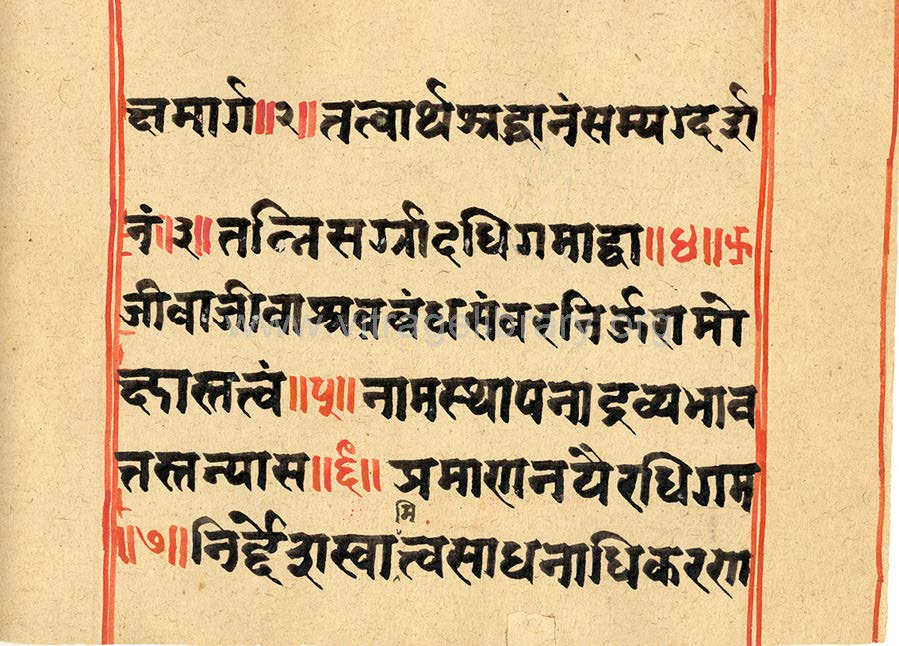 क्षमार्ग॥२॥तत्वार्थश्रद्धानंसम्यग्दर्श
नं॥३॥तन्निसर्ग्गादधिगमाद्वा॥४॥
जीवाजीवाश्रवबंधसंवरनिर्जरामो
क्षास्तत्वं॥५॥नामस्थापनाद्रव्यभाव
तस्तन्यास॥६॥प्रमाणनयैरधिगम
॥७॥निर्द्देशस्वामित्वसाधनाधिकरण